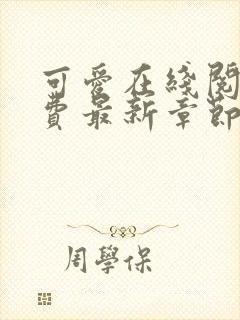 可愛在綫閱
費最新章節
周學保